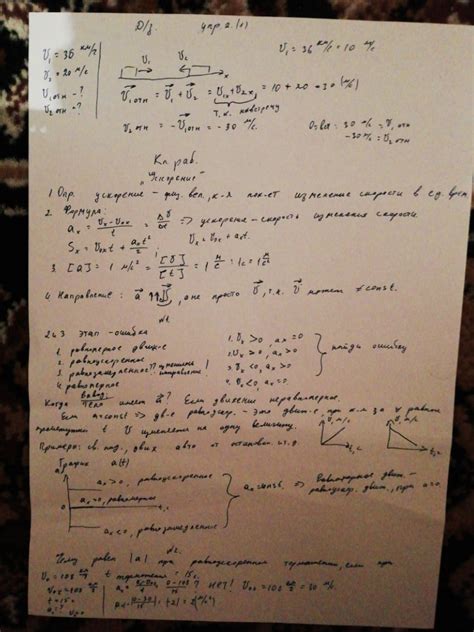 Д/з. упр. 2. (1)
V₁ = 36 км/ч
V₂ = 20 м/с
V₁отн - ?
V₂отн - ?
V₁ = 36 км/ч = 10 м/с
V₁ V₂ x
V₁отн = V₁ + V₂ = V₁x + V₂x = 10 + 20 = 30 (м/с)
т.к. навстречу
V₂отн = -V₁отн = -30 м/с.
Ответ: 30 м/с = V₁отн
-30 м/с = V₂отн
Кл. раб.
"Ускорение"
1 Опр. ускорение - физ. вел., к-я пок-ет изменение скорости в ед. врем
2. Формула:
=> ускорение - скорость изменения скорости.
Sx = V₀xt + axt²/2; Vx = V₀x + axt.
3. [a] = 1 м/с² = [V]/[t] = 1 м/с : 1с = 1 м/с²
4. Направление: a ⇈, а не просто V, т.к. V может ≠ const.
2 и 3 этап - ошибка
1. равномерное движ-е
2. равноускоренное
3. равнозамедленное
4. равномерное
1. Vx > 0, ax = 0
2. Vx > 0, ax > 0
3. Vx < 0, ax > 0
4. Vx < 0,
найди ошибку
Когда тело имеет a? Если движение неравномерное.
Если a = const => дв-е равноускор. - это движ-е, при к-м за ∀ равные
промежутки t V изменяется на одну величину.
Примеры: св. пад., движ авто от остановки и т.д.
График a(t)
a₀ > 0, равноускоренное
a₀ = 0, равномерное
a₀ < 0, равнозамедленное
a = const. => Равномерное движ. -
равноускор. движ., при a = 0.
Чему равен |a| при равноускоренном торможении, если при
V₀ = 108 км/ч t торможения = 15с.
t = 15с
a - ?
V₀x = 108 км/ч = 30 м/с.